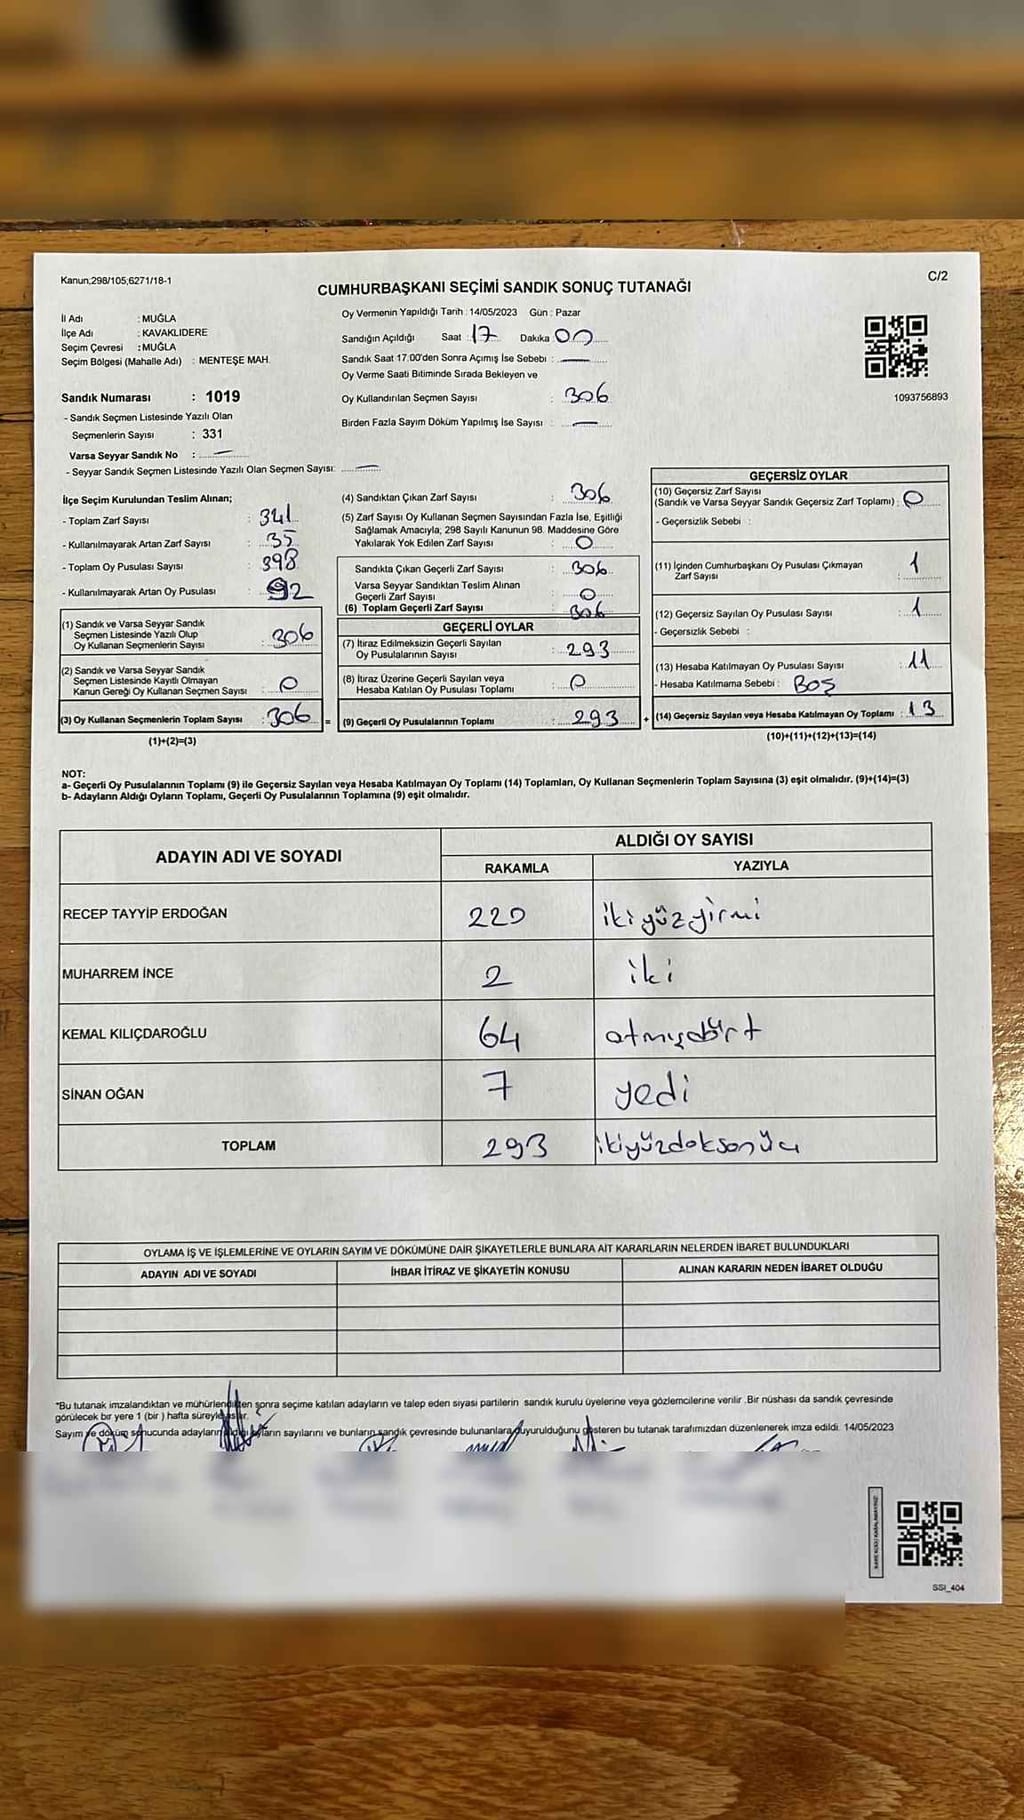 Kanun,298/105;6271/18-1
C/2
CUMHURBAŞKANI SEÇİMİ SANDIK SONUÇ TUTANAĞI
İl Adı : MUĞLA
İlçe Adı : KAVAKLIDERE
Seçim Çevresi : MUĞLA
Seçim Bölgesi (Mahalle Adı) : MENTEŞE MAH.
Sandık Numarası : 1019
- Sandık Seçmen Listesinde Yazılı Olan
Seçmenlerin Sayısı : 331
Varsa Seyyar Sandık No : —
- Seyyar Sandık Seçmen Listesinde Yazılı Olan Seçmen Sayısı: —
Oy Vermenin Yapıldığı Tarih : 14/05/2023 Gün : Pazar
Sandığın Açıldığı Saat : 17 Dakika 00
Sandık Saat 17.00'den Sonra Açımış İse Sebebi : —
Oy Verme Saati Bitiminde Sırada Bekleyen ve
Oy Kullandırılan Seçmen Sayısı : 306
Birden Fazla Sayım Döküm Yapılmış İse Sayısı : —
1093756893
İlçe Seçim Kurulundan Teslim Alınan;
- Toplam Zarf Sayısı : 341
- Kullanılmayarak Artan Zarf Sayısı : 35
- Toplam Oy Pusulası Sayısı : 398
- Kullanılmayarak Artan Oy Pusulası : 92
(1) Sandık ve Varsa Seyyar Sandık
Seçmen Listesinde Yazılı Olup
Oy Kullanan Seçmenlerin Sayısı : 306
(2) Sandık ve Varsa Seyyar Sandık
Seçmen Listesinde Kayıtlı Olmayan
Kanun Gereği Oy Kullanan Seçmen Sayısı : 0
(3) Oy Kullanan Seçmenlerin Toplam Sayısı : 306 =
(1)+(2)=(3)
(4) Sandıktan Çıkan Zarf Sayısı : 306
(5) Zarf Sayısı Oy Kullanan Seçmen Sayısından Fazla İse, Eşitliği
Sağlamak Amacıyla, 298 Sayılı Kanunun 98. Maddesine Göre
Yakılarak Yok Edilen Zarf Sayısı : 0
Sandıkta Çıkan Geçerli Zarf Sayısı : 306
Varsa Seyyar Sandıktan Teslim Alınan
Geçerli Zarf Sayısı : 0
(6) Toplam Geçerli Zarf Sayısı : 306
GEÇERLİ OYLAR
(7) İtiraz Edilmeksizin Geçerli Sayılan
Oy Pusulalarının Sayısı : 293
(8) İtiraz Üzerine Geçerli Sayılan veya
Hesaba Katılan Oy Pusulası Toplamı : 0
(9) Geçerli Oy Pusulalarının Toplamı : 293 +
GEÇERSİZ OYLAR
(10) Geçersiz Zarf Sayısı
(Sandık ve Varsa Seyyar Sandık Geçersiz Zarf Toplamı) : 0
- Geçersizlik Sebebi :
(11) İçinden Cumhurbaşkanı Oy Pusulası Çıkmayan
Zarf Sayısı : 1
(12) Geçersiz Sayılan Oy Pusulası Sayısı : 1
- Geçersizlik Sebebi :
(13) Hesaba Katılmayan Oy Pusulası Sayısı : 11
- Hesaba Katılmama Sebebi : Boş
(14) Geçersiz Sayılan veya Hesaba Katılmayan Oy Toplamı : 13
(10)+(11)+(12)+(13)=(14)
NOT:
a- Geçerli Oy Pusulalarının Toplamı (9) ile Geçersiz Sayılan veya Hesaba Katılmayan Oy Toplamı (14) Toplamları, Oy Kullanan Seçmenlerin Toplam Sayısına (3) eşit olmalıdır. (9)+(14)=(3)
b- Adayların Aldığı Oyların Toplamı, Geçerli Oy Pusulalarının Toplamına (9) eşit olmalıdır.
ADAYIN ADI VE SOYADI
ALDIĞI OY SAYISI
RAKAMLA YAZIYLA
RECEP TAYYİP ERDOĞAN 220 ikiyüzyirmi
MUHARREM İNCE 2 iki
KEMAL KILIÇDAROĞLU 64 atmışdört
SİNAN OĞAN 7 yedi
TOPLAM 293 ikiyüzdoksonüç
OYLAMA İŞ VE İŞLEMLERİNE VE OYLARIN SAYIM VE DÖKÜMÜNE DAİR ŞİKAYETLERLE BUNLARA AİT KARARLARIN NELERDEN İBARET BULUNDUKLARI
ADAYIN ADI VE SOYADI İHBAR İTİRAZ VE ŞİKAYETİN KONUSU ALINAN KARARIN NEDEN İBARET OLDUĞU
*Bu tutanak imzalandıktan ve mühürlendikten sonra seçime katılan adayların ve talep eden siyasi partilerin sandık kurulu üyelerine veya gözlemcilerine verilir .Bir nüshası da sandık çevresinde
görülecek bir yere 1 (bir ) hafta süreyle asılır.
Sayım ve döküm sonucunda adayların aldığı oyların sayılarını ve bunların sandık çevresinde bulunanlara duyurulduğunu gösteren bu tutanak tarafımızdan düzenlenerek imza edildi. 14/05/2023
SSI_404